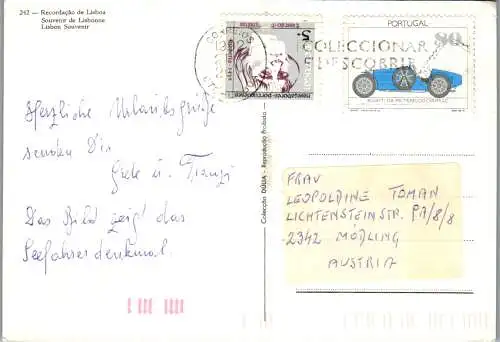 242 — Recordação de Lisboa
Souvenir de Lisbonne
Lisbon Souvenir
Herzliche Urlaubsgrüße
senden Dir
Grete u. Franzi
Das Bild zeigt das
Seefahrerdenkmal.
Colecção DÚLIA - Reprodução Proibida
CORREIOS
5.
navegadores portugueses
PORTUGAL
80
COLECCIONAR
É DESCOBRIR
FRAU
LEOPOLDINE TOMAN
LICHTENSTEINSTR. PA/8/8
2342 MÖDLING
AUSTRIA